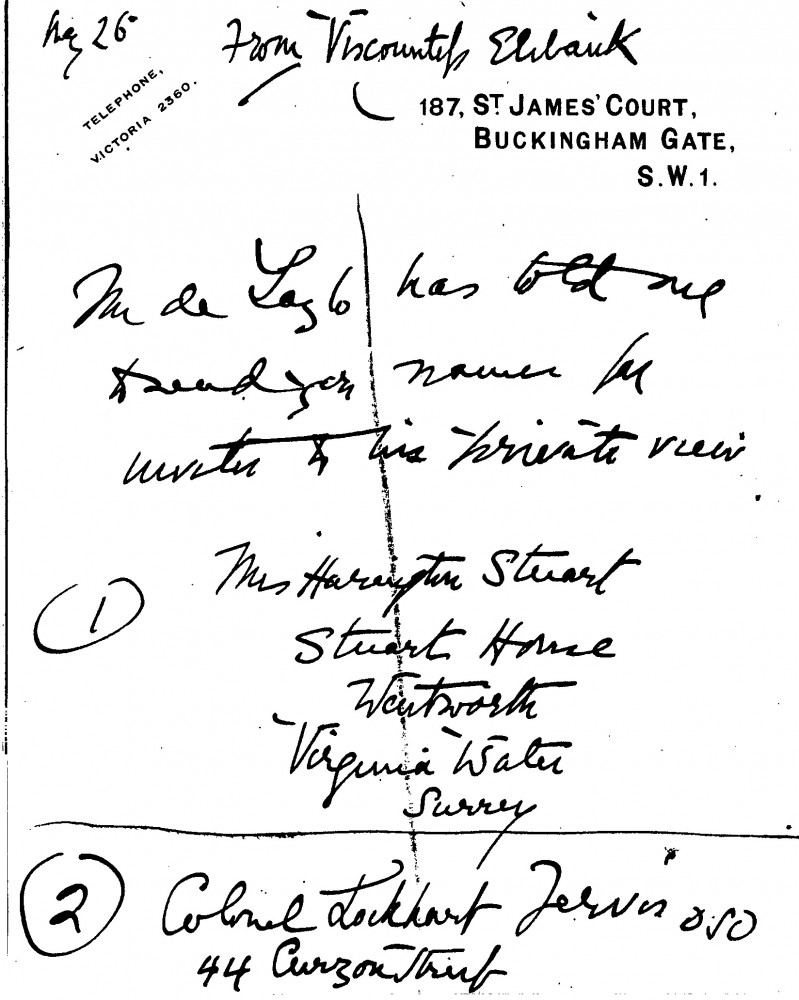 May 26
From Viscountess Elibank
TELEPHONE,
VICTORIA 2360.
187, ST JAMES' COURT,
BUCKINGHAM GATE,
S.W.1.
Mr de Laszlo has told me
to send you names for
invites to his private view
1
Mrs Harington Stuart
Stuart House
Wentworth
Virginia Water
Surrey
2
Colonel Lockhart Jervis DSO
44 Curzon Street